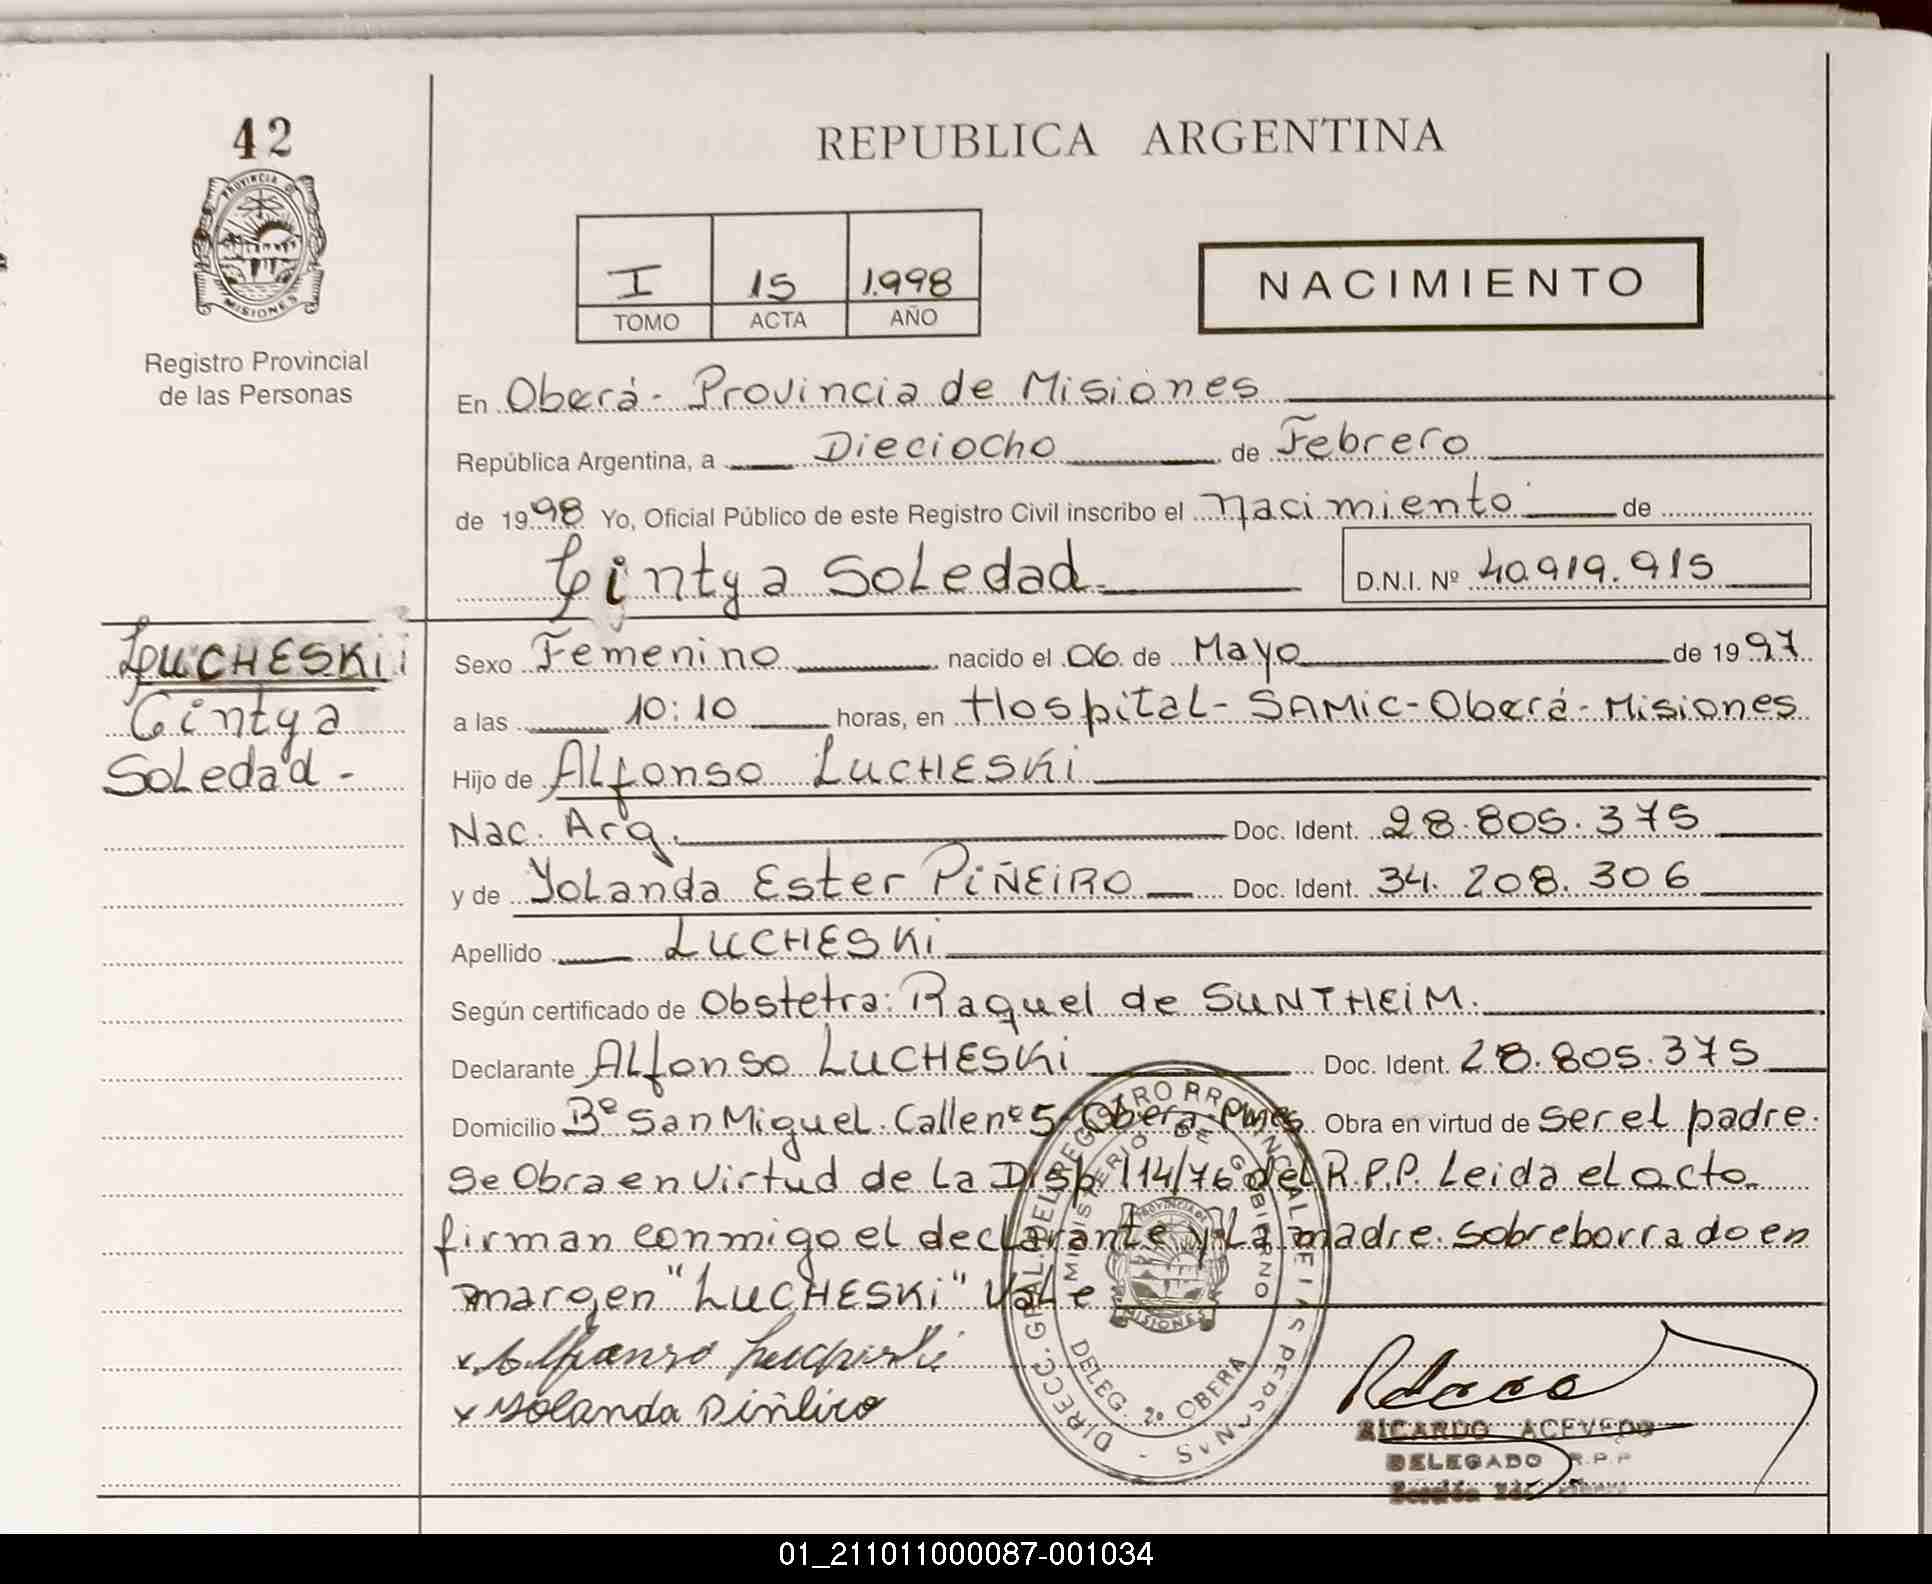 42
PROVINCIA DE
MISIONES
Registro Provincial
de las Personas
REPUBLICA ARGENTINA
I 15 1.998
TOMO ACTA AÑO
NACIMIENTO
En Oberá - Provincia de Misiones
República Argentina, a Dieciocho de Febrero
de 1998 Yo, Oficial Público de este Registro Civil inscribo el nacimiento de
Cintya Soledad.
D.N.I. Nº 40.919.915
LUCHESKi
Cintya
Soledad -
Sexo Femenino nacido el 06 de Mayo de 1997
a las 10:10 horas, en Hospital - SAMic - Oberá - Misiones
Hijo de Alfonso LUCHESKi
Nac. Arg. Doc. Ident. 28.805.375
y de Yolanda Ester PiÑEiRO Doc. Ident. 34.208.306
Apellido LUCHESKi
Según certificado de Obstetra: Raquel de SUNTHEiM.
Declarante Alfonso LUCHESKi Doc. Ident. 28.805.375
Domicilio Bº San Miguel. Calle nº 5 Oberá - Mnes Obra en virtud de ser el padre.
Se Obra en Virtud de La Disp 114/76 del R.P.P. Leida el acto
firman conmigo el declarante y La madre. sobreborrado en
margen "LUCHESKi" Vale
x Alfonso Lucheski
x Yolanda Piñeiro
DIRECC. GRAL. DEL REGISTRO PROVINCIAL DE LAS PERSONAS
MINISTERIO DE GOBIERNO
PROVINCIA DE
MISIONES
DELEG. 2º OBERA
RICARDO ACEVEDO
DELEGADO R.P.P
01_211011000087-001034